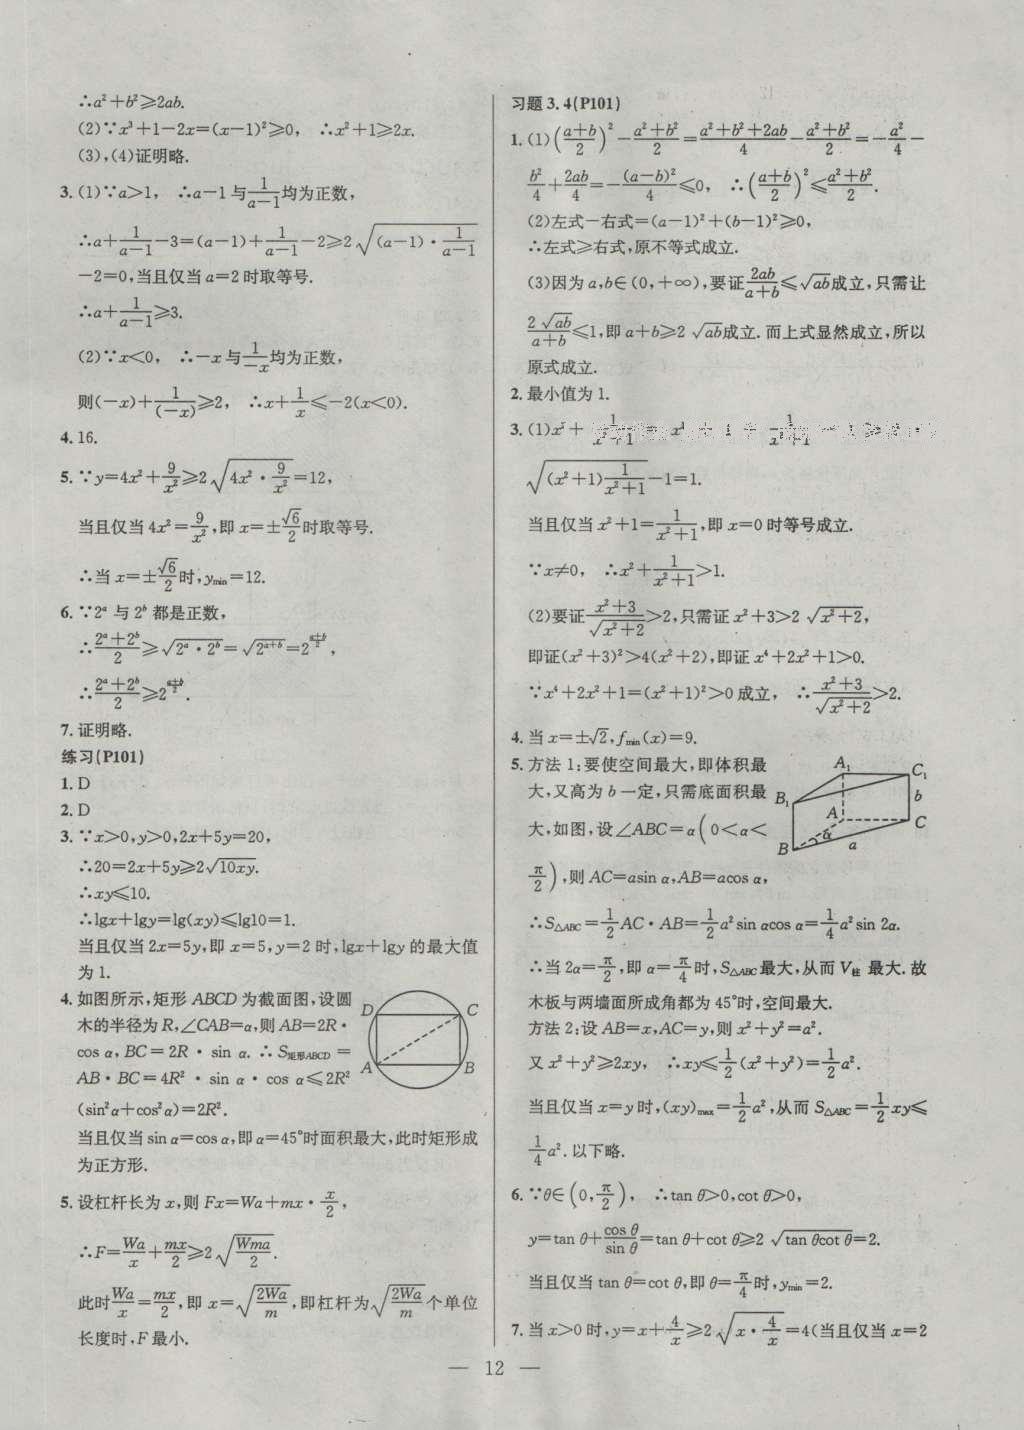 ∴a²+b²≥2ab.
(2)∵x³+1-2x=(x-1)²≥0, ∴x²+1≥2x.
(3),(4)证明略.
3. (1)∵a>1, ∴a-1与\frac{1}{a-1}均为正数,
∴a+\frac{1}{a-1}-3=(a-1)+\frac{1}{a-1}-2≥2\sqrt{(a-1)·\frac{1}{a-1}}
-2=0,当且仅当a=2时取等号.
∴a+\frac{1}{a-1}≥3.
(2)∵x<0, ∴-x与\frac{1}{-x}均为正数,
则(-x)+\frac{1}{(-x)}≥2, ∴x+\frac{1}{x}≤-2(x<0).
4. 16.
5. ∵y=4x²+\frac{9}{x²}≥2\sqrt{4x²·\frac{9}{x²}}=12,
当且仅当4x²=\frac{9}{x²},即x=±\frac{\sqrt{6}}{2}时取等号.
∴当x=±\frac{\sqrt{6}}{2}时,y_{min}=12.
6. ∵2^a与2^b都是正数,
∴\frac{2^a+2^b}{2}≥\sqrt{2^a·2^b}=\sqrt{2^{a+b}}=2^{\frac{a+b}{2}},
∴\frac{2^a+2^b}{2}≥2^{\frac{a+b}{2}}.
7. 证明略.
练习(P101)
1. D
2. D
3. ∵x>0,y>0,2x+5y=20,
∴20=2x+5y≥2\sqrt{10xy}.
∴xy≤10.
∴lgx+lgy=lg(xy)≤lg10=1.
当且仅当2x=5y,即x=5,y=2时,lgx+lgy的最大值
为1.
4. 如图所示,矩形ABCD为截面图,设圆
木的半径为R,∠CAB=α,则AB=2R·
cos α,BC=2R·sin α. ∴S_{矩形ABCD}=
AB·BC=4R²·sin α·cos α≤2R²
(sin²α+cos²α)=2R².
D C
A B
当且仅当sin α=cos α,即α=45°时面积最大,此时矩形成
为正方形.
5. 设杠杆长为x,则Fx=Wa+mx·\frac{x}{2},
∴F=\frac{Wa}{x}+\frac{mx}{2}≥2\sqrt{\frac{Wma}{2}}.
此时\frac{Wa}{x}=\frac{mx}{2},即x=\sqrt{\frac{2Wa}{m}},即杠杆为\sqrt{\frac{2Wa}{m}}个单位
长度时,F最小.
习题3.4(P101)
1. (1)(\frac{a+b}{2})²-\frac{a²+b²}{2}=\frac{a²+b²+2ab}{4}-\frac{a²+b²}{2}=-\frac{a²}{4}-
\frac{b²}{4}+\frac{2ab}{4}=-\frac{(a-b)²}{4}≤0, ∴(\frac{a+b}{2})²≤\frac{a²+b²}{2}.
(2)左式-右式=(a-1)²+(b-1)²≥0,
∴左式≥右式,原不等式成立.
(3)因为a,b∈(0,+∞),要证\frac{2ab}{a+b}≤\sqrt{ab}成立,只需让
\frac{2\sqrt{ab}}{a+b}≤1,即a+b≥2\sqrt{ab}成立.而上式显然成立,所以
原式成立.
2. 最小值为1.
3. (1)x²+\frac{1}{x²+1}
\sqrt{(x²+1)\frac{1}{x²+1}}-1=1.
当且仅当x²+1=\frac{1}{x²+1},即x=0时等号成立.
∵x≠0, ∴x²+\frac{1}{x²+1}>1.
(2)要证\frac{x²+3}{\sqrt{x²+2}}>2,只需证x²+3>2\sqrt{x²+2},
即证(x²+3)²>4(x²+2),即证x⁴+2x²+1>0.
∵x⁴+2x²+1=(x²+1)²>0成立, ∴\frac{x²+3}{\sqrt{x²+2}}>2.
4. 当x=±\sqrt{2},f_{min}(x)=9.
5. 方法1:要使空间最大,即体积最
大,又高为b一定,只需底面积最
大,如图,设∠ABC=α(0<α<
\frac{π}{2}),则AC=asin α,AB=acos α,
A₁ C₁
B₁ b
A C
B α a
∴S_{△ABC}=\frac{1}{2}AC·AB=\frac{1}{2}a²sin αcos α=\frac{1}{4}a²sin 2α.
∴当2α=\frac{π}{2},即α=\frac{π}{4}时,S_{△ABC}最大,从而V_{柱}最大.故
木板与两墙面所成角都为45°时,空间最大.
方法2:设AB=x,AC=y,则x²+y²=a².
又x²+y²≥2xy, ∴xy≤\frac{1}{2}(x²+y²)=\frac{1}{2}a².
当且仅当x=y时,(xy)_{max}=\frac{1}{2}a²,从而S_{△ABC}=\frac{1}{2}xy≤
\frac{1}{4}a².以下略.
6. ∵θ∈(0,\frac{π}{2}), ∴tan θ>0,cot θ>0,
y=tan θ+\frac{cos θ}{sin θ}=tan θ+cot θ≥2\sqrt{tan θcot θ}=2.
当且仅当tan θ=cot θ,即θ=\frac{π}{4}时,y_{min}=2.
7. 当x>0时,y=x+\frac{4}{x}≥2\sqrt{x·\frac{4}{x}}=4(当且仅当x=2
— 12 —